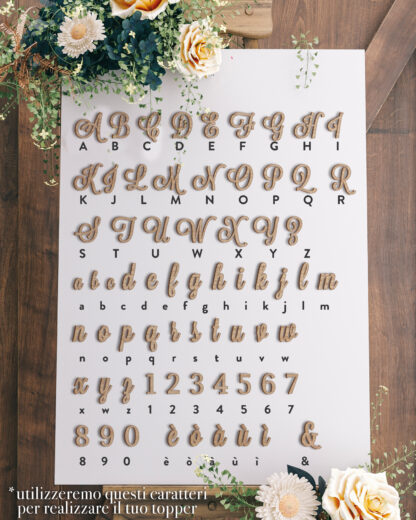 A B C D E F G H I
A B C D E F G H I
K J L M N O P Q R
K J L M N O P Q R
S T U W X Y Z
S T U W X Y Z
a b c d e f g h i k j l m
a b c d e f g h i k j l m
n o p q r s t u v w
n o p q r s t u v w
x y z 1 2 3 4 5 6 7
x w z 1 2 3 4 5 6 7
8 9 0 è ò à ù ì &
8 9 0 è ò à ù ì &
*utilizzeremo questi caratteri
per realizzare il tuo topper